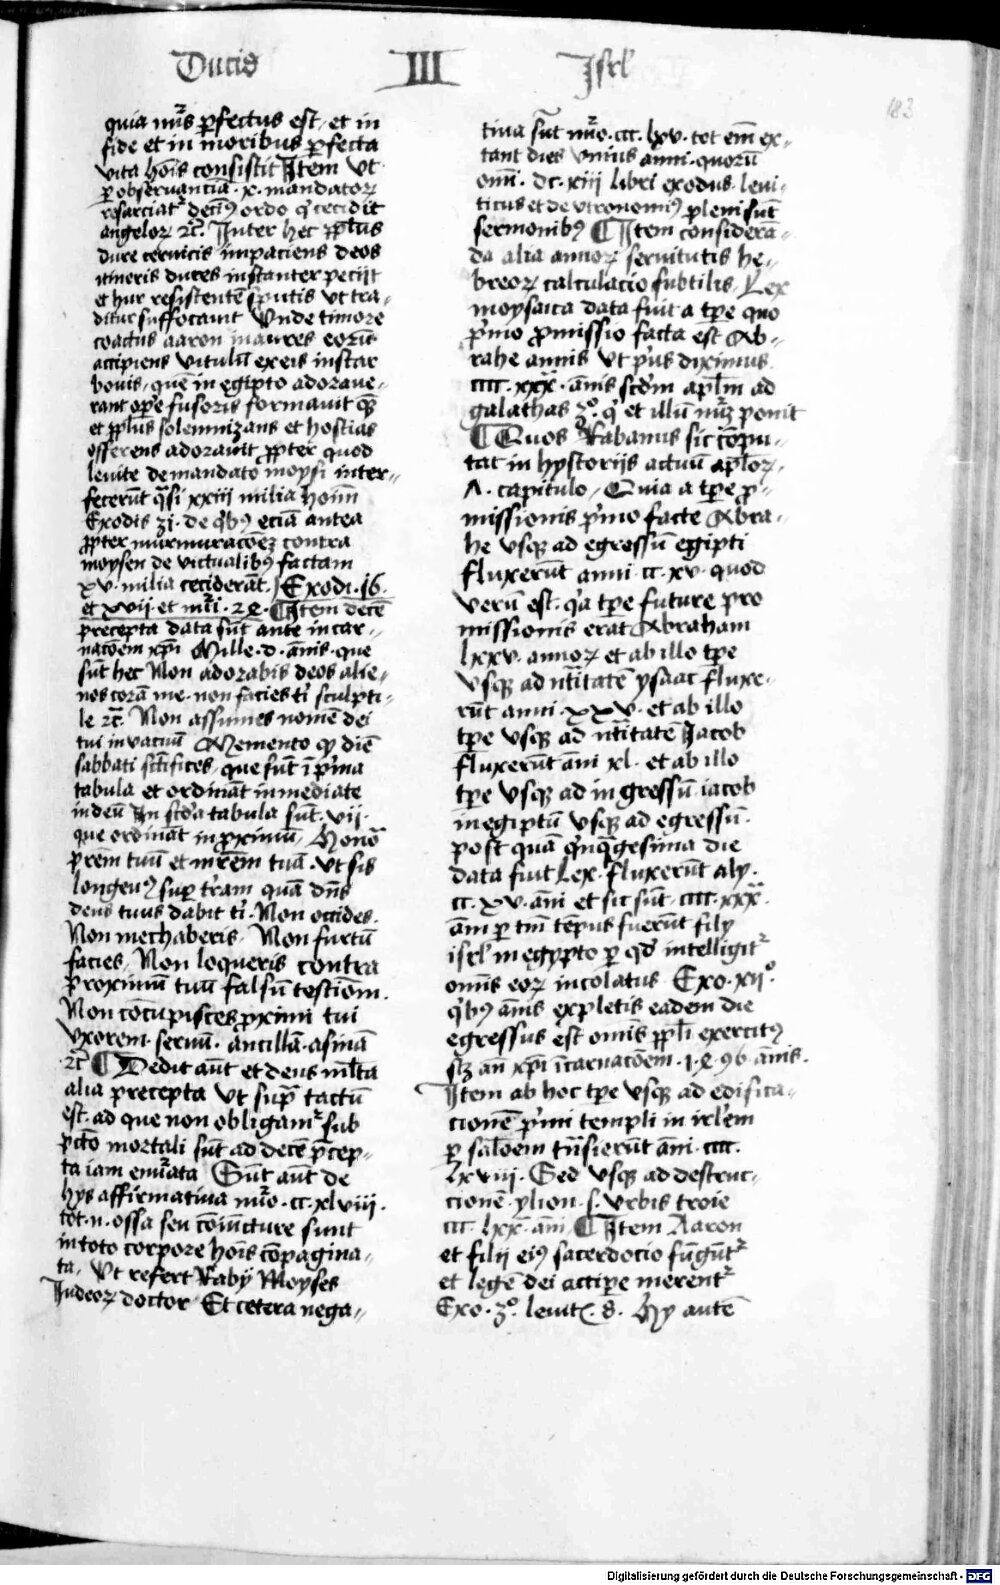 Ducis III Isrl'
183
quia nūs pfectus est, et in
fide et in moribus pfecta
vita hōis consistit Item vt
p observanciā · x · mandatoꝝ
resarciatr deciꝰ ordo q cecidit
angeloꝝ ꝛc̄. Inter hec pplus
dure cervicis impaciens deos
itineris duces instanter pecijt
et hur resistentē sputis vt tra-
ditur suffocavit Unde timore
coactus aaron inaures eorū
accipiens vitulū ex eis instar
bovis, quē in egipto adorave-
rant ope fusoris formavit
et pplus solemnizans et hostias
offerens adoravit ppter quod
levite de mandato moysi inter-
fecerūt qsi xxiii milia hoīm
Exodis 31 · de qbꝰ eciā antea
ppter murmuracōeꝫ contra
moysen de victualibꝰ factam
xv · milia ceciderāt. Exodi · 16 ·
et xvij · et · Item decē
precepta data sūt ante incar-
nacōem xpi Mille · d · ānis · que
sūt hec Non adorabis deos alie-
nos corā me · non facies ti sculpti-
le ꝛc̄. Non assumes nomē dei
tui in vacuū Memento qꝫ diē
sabbati sctifices, que sūt ī pma
tabula et ordināt inmediate
in deū In scda tabula sūt · vij ·
que ordināt in proximū, Honoa
prēm tuū et mrēm tuā · vt sis
longevꝰ sup trām quā dn̄s
deus tuus dabit ti · Non occides ·
Non mechaberis · Non furtū
facies, Non loqueris contra
proximū tuū falsū testiōm ·
Non cōcupisces proximi tui
vxorem · servū · ancillā · asinā
ꝛc̄ Dedit aūt et deus ml̄ta
alia precepta vt supra tactū
est · ad que non obligamr sub
pctō mortali sūt ad decē pcep-
ta iam enūata Sūt aūt de
hys affirmativa nūo · cc · xlviii ·
tot · n · ossa seu cōiucture sunt
in toto corpore hoīs cōpagina-
ta, Vt refert Raby Moyses
Iudeoꝝ doctor Et cetera nega-
tiva sūt nūo · ccc · lxv · tot em̄ ex-
tant dies vnius anni · quorū
om̄i · dc · xiii libri exodus · levi-
ticus et devtronomiꝰ pleni sūt
sermonibꝰ Item considerā-
da alia annoꝝ servitutis he-
breoꝝ calculacio subtilis, Lex
moysaica data fuit a tpe quo
pmo promissio facta est Ab-
rahe annis vt pus diximus
cccc · xxx · ānis scdm aplm ad
galathas 3o · q et illū ponit
Quos Rabanus sic cōpu-
tat in hystoriis actuū aploꝝ,
A · capitulo, Quia a tpe pro-
missionis pmo facte Abra-
he vsqꝫ ad egressū egipti
fluxerūt anni · cc · xv · quod
verū est · qa tpe future pro
missionis erat Abraham
lxxv · annoꝝ et ab illo tpe
vsqꝫ ad nītatē ysaac fluxe-
rūt anni · xxv · et ab illo
tpe vsqꝫ ad nītatē Iacob
fluxerūt āni xl · et ab illo
tpe vsqꝫ ad ingressū iacob
in egiptū vsqꝫ ad egressū ·
post quā qnqgesima die
data fuit Lex · fluxerūt aly ·
cc · xv · āni et sic sūt · cccc · xxx ·
ām p tm tēpus fuerūt fily
isrl' in egypto p qd intelligitr
omīs eoꝝ incolatus Exo · xijo
qbꝰ ānis expletis eadem die
egressus est omīs ppli exercitꝰ
an xpi īcarnacōem · ānis ·
Item ab hoc tpe vsqꝫ ad edifica-
cionē pmi templi in irlem
p salōem tnsierūt āni · cccc ·
lxviii · Sed vsqꝫ ad destruc-
cionē ylion · s · vrbis troie
ccc · lxx · āni Item Aaron
et filii eiꝰ sacerdocio fūgūtr
et legē dei accipe merentr
Exo · 3o · levit · 8 · Hy autē
Digitalisierung gefördert durch die Deutsche Forschungsgemeinschaft - DFG